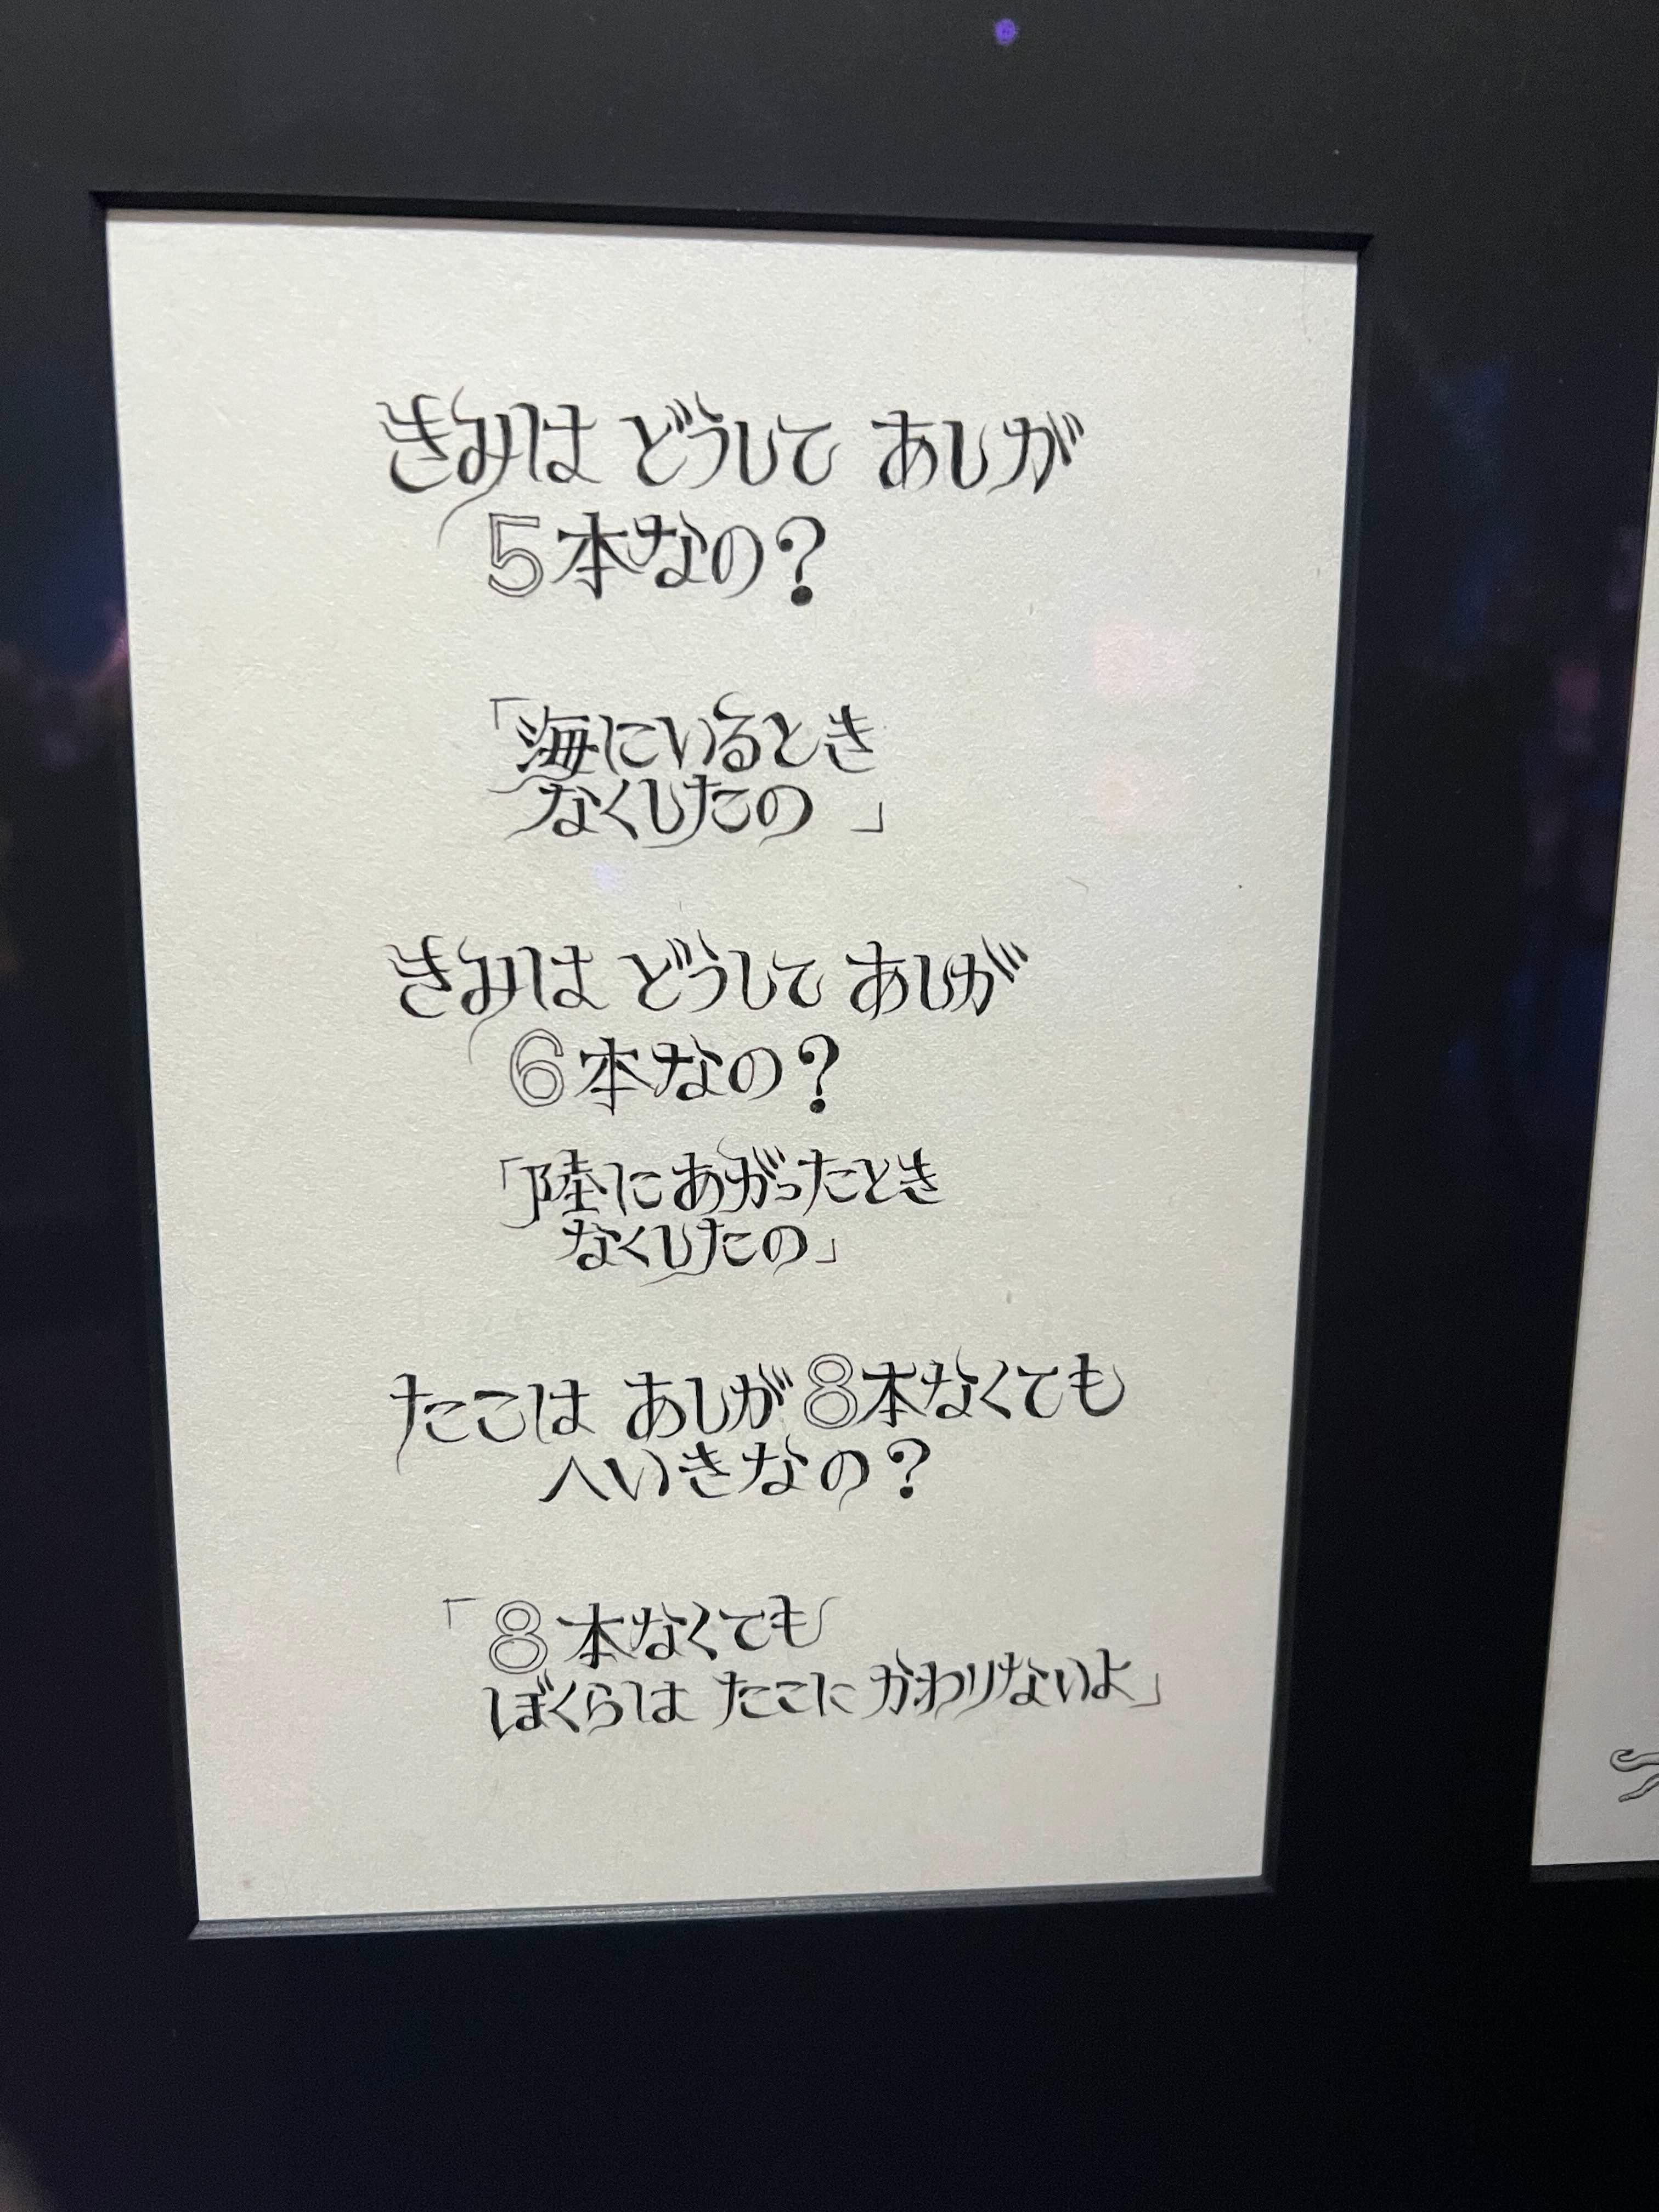 きみは どうして あしが
5本なの？
「海にいるとき
なくしたの 」
きみは どうして あしが
6本なの？
「陸にあがったとき
なくしたの」
たこは あしが8本なくても
へいきなの？
「8本なくても
ぼくらは たこに かわりないよ」